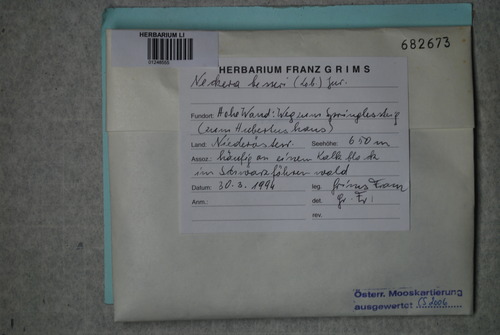 HERBARIUM LI
682673
HERBARIUM FRANZ GRIMS
Neckera besseri (Lob.) Jur.
Fundort: Hohe Wand: Weg zum Springlessteig
(zum Hubertushaus)
Land: Niederösterr. Seehöhe: 650 m
Assoz.: häufig an einem Kalkfleck
im Schwarzföhrenwald
Datum: 30.3.1994 leg. Grims Franz
Anm.: det. Gr. Fr.
rev.
Österr. Mooskartierung
ausgewertet